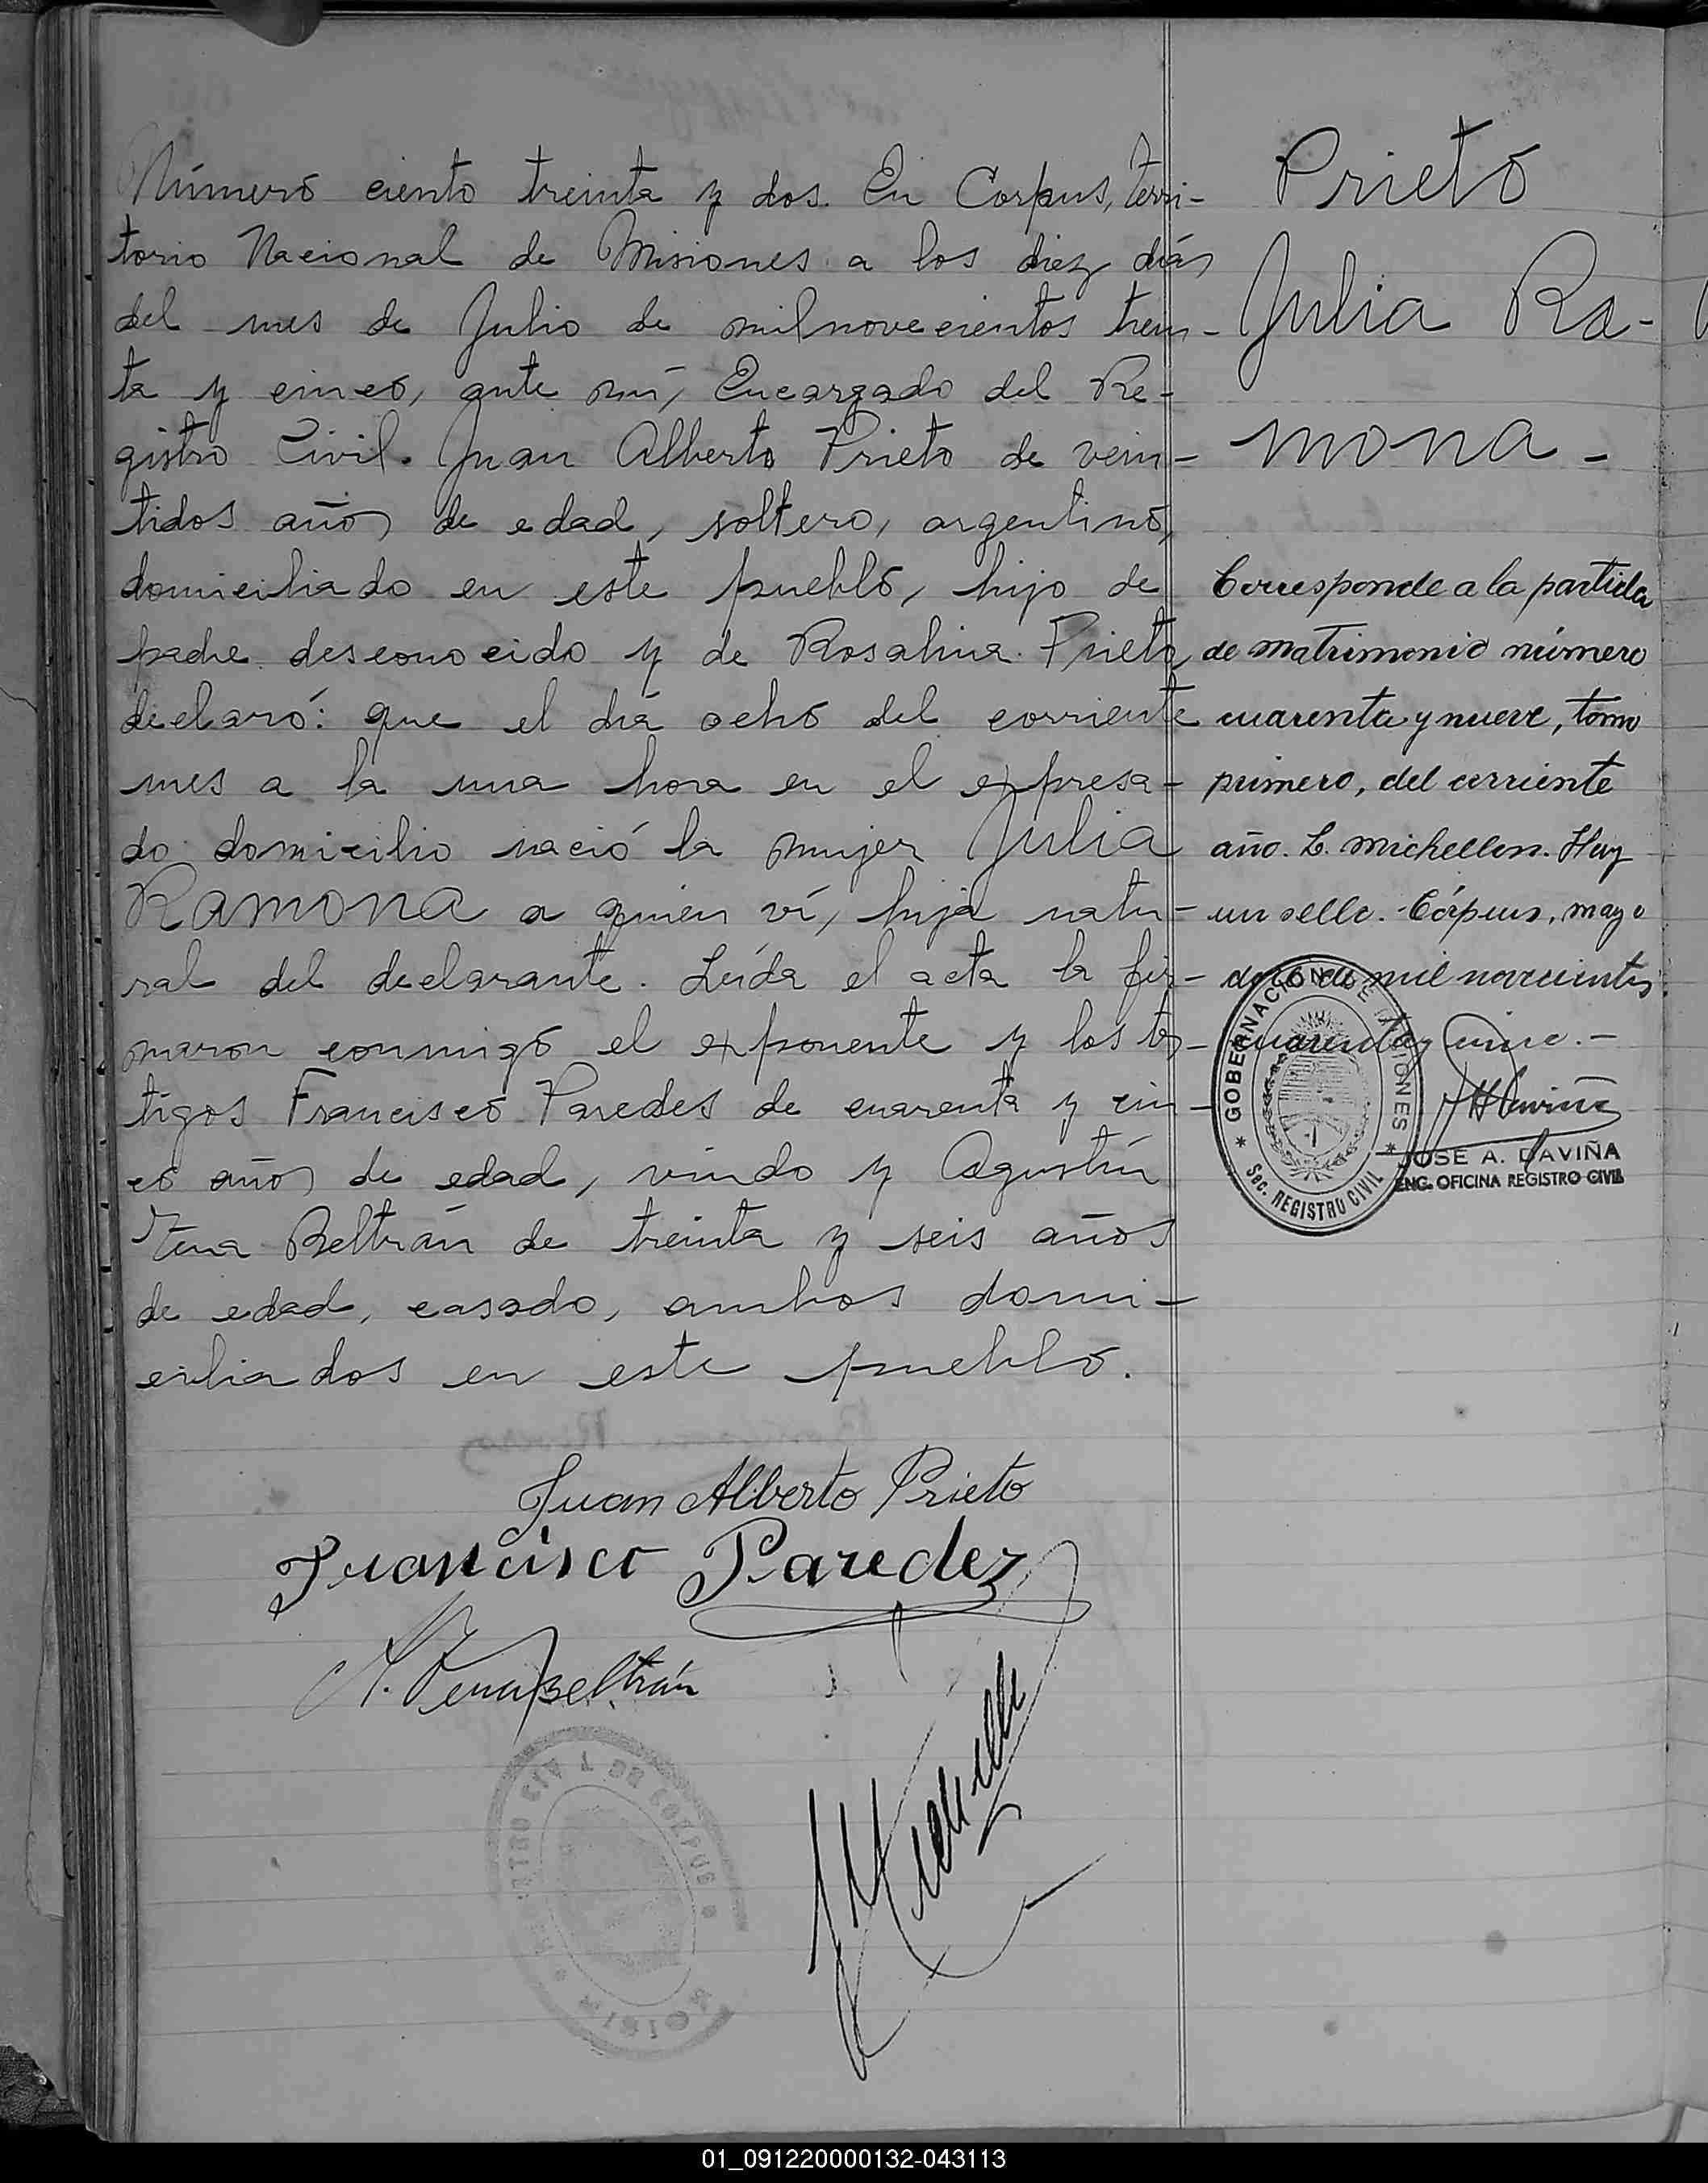 Número ciento treinta y dos. En Corpus, terri-
torio Nacional de Misiones a los diez días
del mes de Julio de milnovecientos trein-
ta y cinco, ante mí, Encargado del Re-
gistro Civil. Juan Alberto Prieto de vein-
tidos años de edad, soltero, argentino,
domiciliado en este pueblo, hijo de
padre desconocido y de Rosalina Prieto,
declaró: que el día ocho del corriente
mes a la una hora en el expresa-
do domicilio nació la mujer Julia
Ramona a quien ví, hija natu-
ral del declarante. Leída el acta la fir-
maron conmigo el exponente y los tes-
tigos Francisco Paredes de cuarenta y cin-
co años de edad, viudo y Agustín
Tena Beltrán de treinta y seis años
de edad, casado, ambos domi-
ciliados en este pueblo.
Juan Alberto Prieto
Francisco Paredez
A. Tena Beltrán
Prieto
Julia Ra-
mona-
Corresponde a la partida
de matrimonio número
cuarenta y nueve, tomo
primero, del corriente
año. L. Michellon. Hay
un sello. Córpus, mayo
doce de mil novecientos
cuarenta y cinco.-
GOBERNACION DE MISIONES
Sec. REGISTRO CIVIL
JOSE A. DAVIÑA
ENC. OFICINA REGISTRO CIVIL
01_091220000132-043113